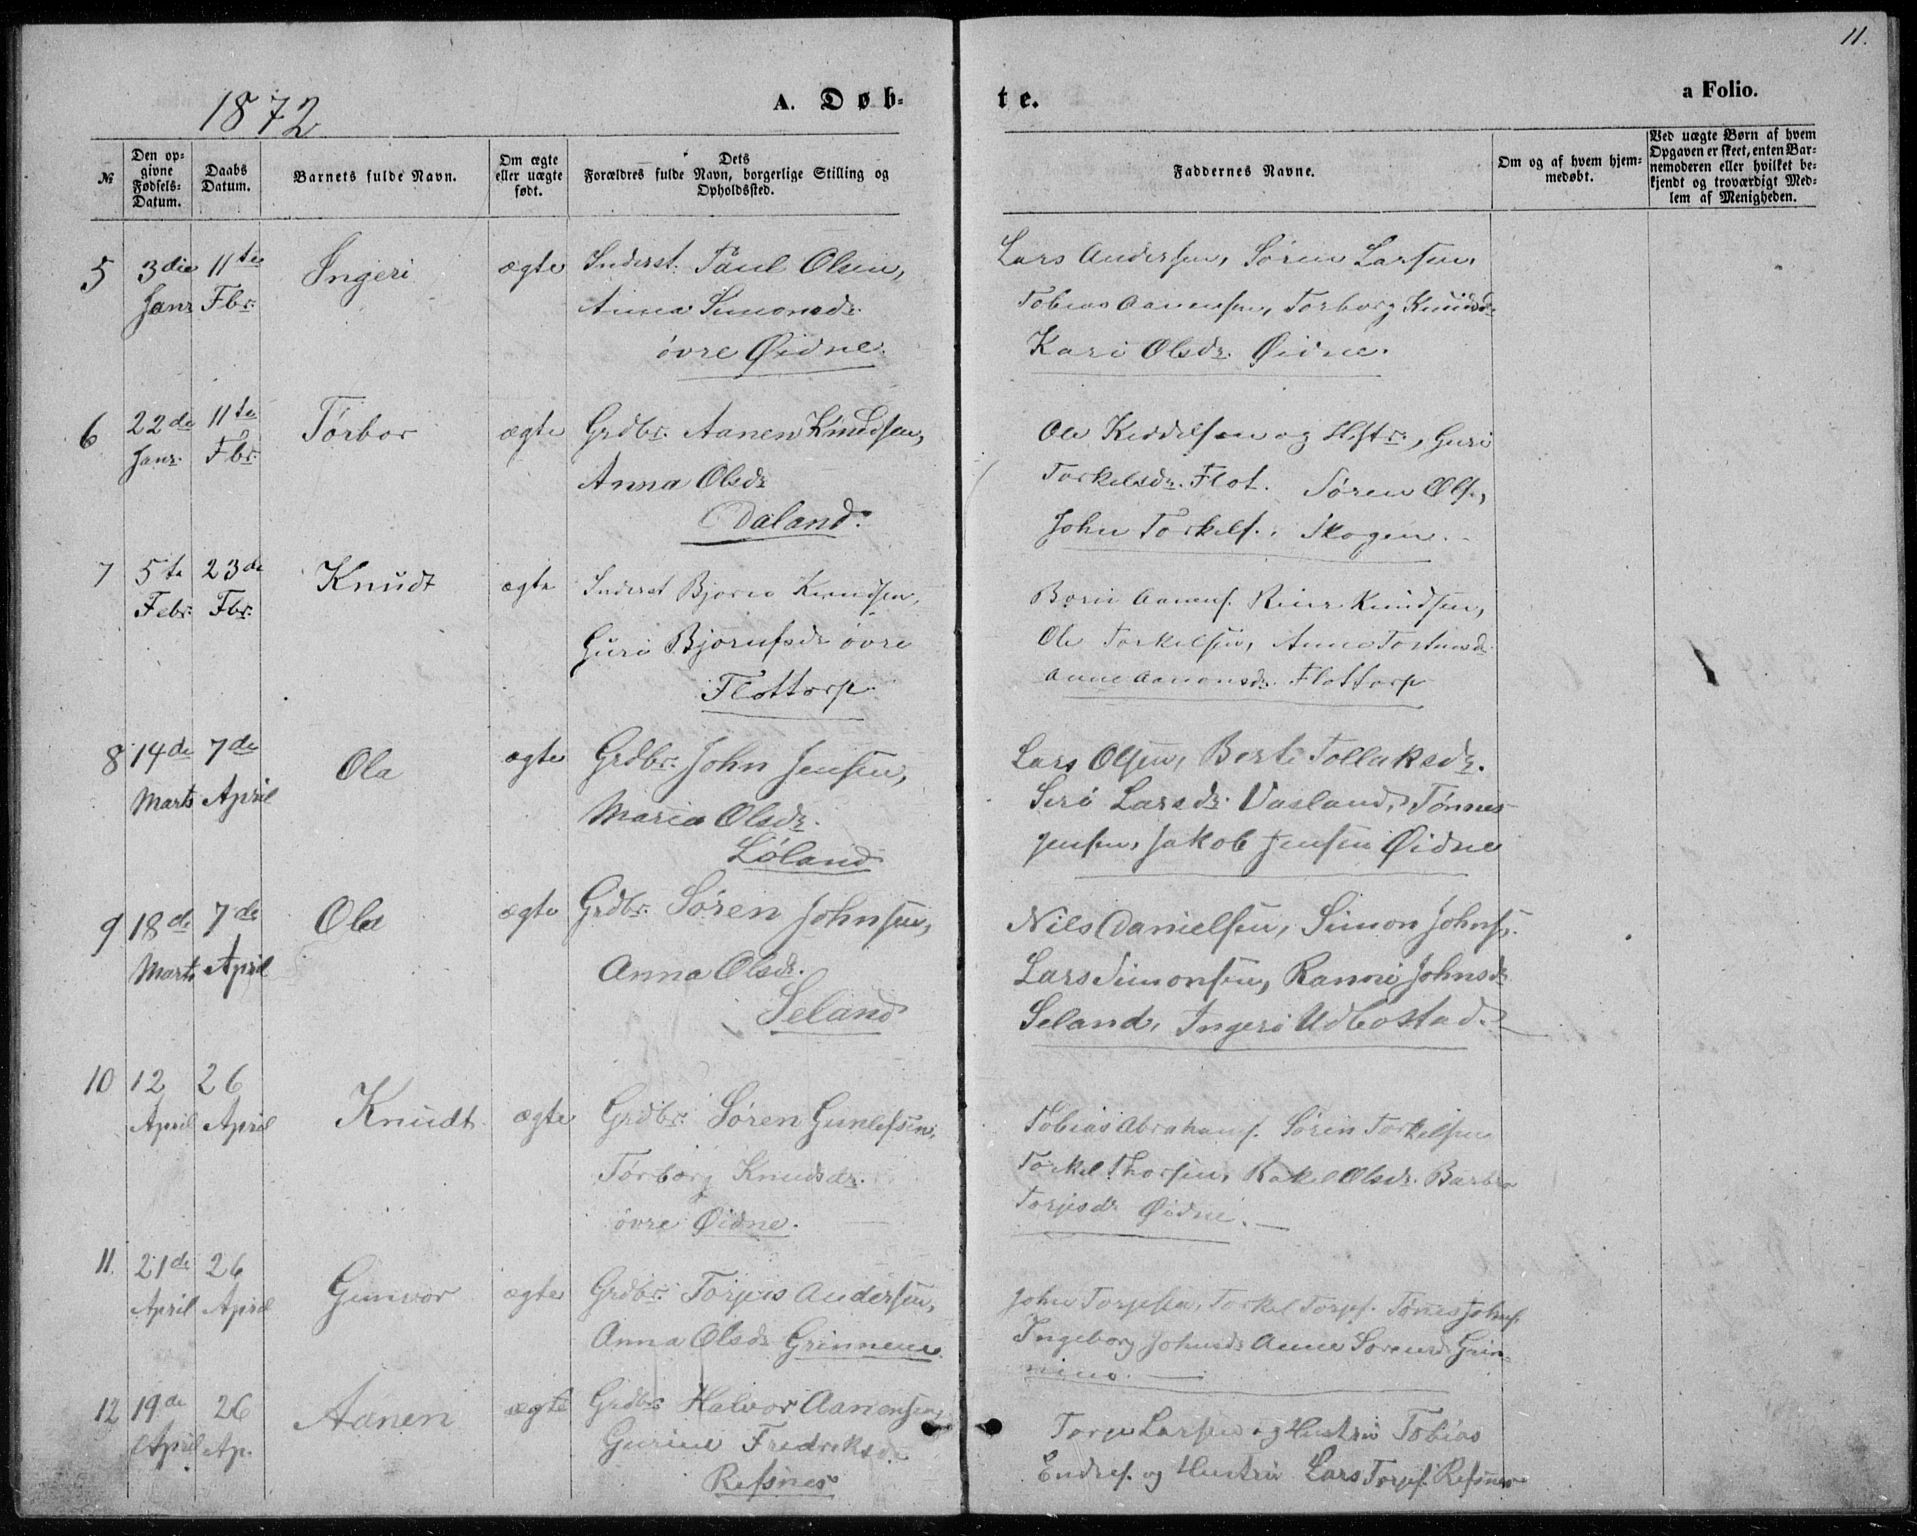 11.
1872
A. Døb-
te.
a Folio.
№
Den opgivne Fødsels-Datum.
Daabs Datum.
Barnets fulde Navn.
Om ægte eller uægte født.
Dets Forældres fulde Navn, borgerlige Stilling og Opholdssted.
Faddernes Navne.
Om og af hvem hjemmedøbt.
Ved uægte Børn af hvem Opgaven er skeet, enten Barnemoderen eller hvilket bekjendt og troværdigt Medlem af Menigheden.
5 3die 11te Ingeri ægte Inderst. Paul Olsen,
Janr Fbr. Anna Simonsdr.
øvre Øidne.
Lars Andersen, Søren Larsen,
Tobias Aanensen, Torborg Knudsdr
Kari Olsdr. Øidne.
6 22de 11te Tørbor ægte Grdbr. Aanen Knudsen,
Janr. Fbr. Anna Olsdr
Daland.
Ole Keddelsen og Hustr., Guri
Torkelsdr. Flot. Søren Ols.,
John Torkels. Skogen.
7 5te 23de Knudt ægte Inderst Bjorn Knudsen,
Febr. Fbr. Guri Bjornfsdr øvre
Flottorp
Aanens. Knudsen,
Ole Torkelsen, Anne Tostensdr
Anne Aanonsdr. Flottorp
8 14de 7de Ola ægte Grdbr. John Jensen,
Marts April Maria Olsdr.
Løland
Lars Olsen, Berte Tollaksdr.
Siri Larsdr. Vasland, Tønnes
Jensen, Jakob Jensen Øidne
9 18de 7de Ola ægte Grdbr. Søren Johnsen,
Marts April Anna Olsdr.
Seland
Nils Danielsen, Simon Johns.
Lars Simonsen, Rannei Johnsdr
Seland, Ingeri Udbostad.
10 12 26 Knudt ægte Grdbr. Søren Gunlefsen,
April April Tørborg Knudsdr.
øvre Øidne.
Tobias Abrahams. Søren Torkelsen
Torkel Thorsen, Rakel Olsdr. Barbra
Torjesdr Øidne.
11. 21de 26 Gunvor ægte Grdbr. Torjus Andersen,
April April Anna Olsdr Grinnene.
John Torjesen, Torkel Torjs. Tønes Johns.
Ingeborg Johnsdr Anne Sorensdr Grin-
nene.
12 19de 26 Aanen ægte Grdbr Halvor Aanensen,
April Ap. Gurine Fredriksdr
Refsnes
Torje Larsen og Hustru Tobias
Endres. og Hustru Lars Torjes. Refsnes